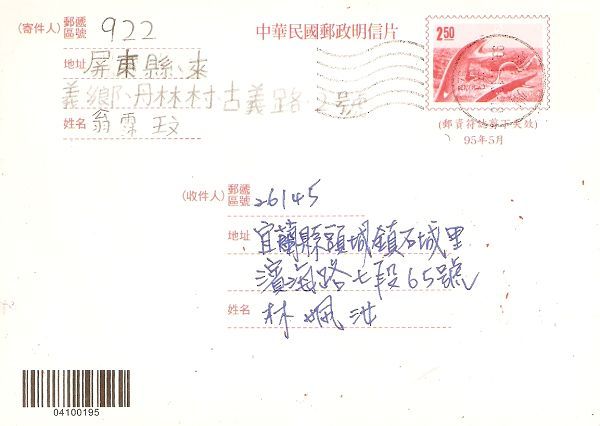 (寄件人) 郵遞區號 922
中華民國郵政明信片
2.50
地址 屏東縣、來
義鄉、丹林村、古義路、2號
姓名 翁霖玟
(郵資符誌剪下失效)
95年5月
(收件人) 郵遞區號 26145
地址 宜蘭縣頭城鎮石城里
濱海路七段65號
姓名 林姵汝
04100195